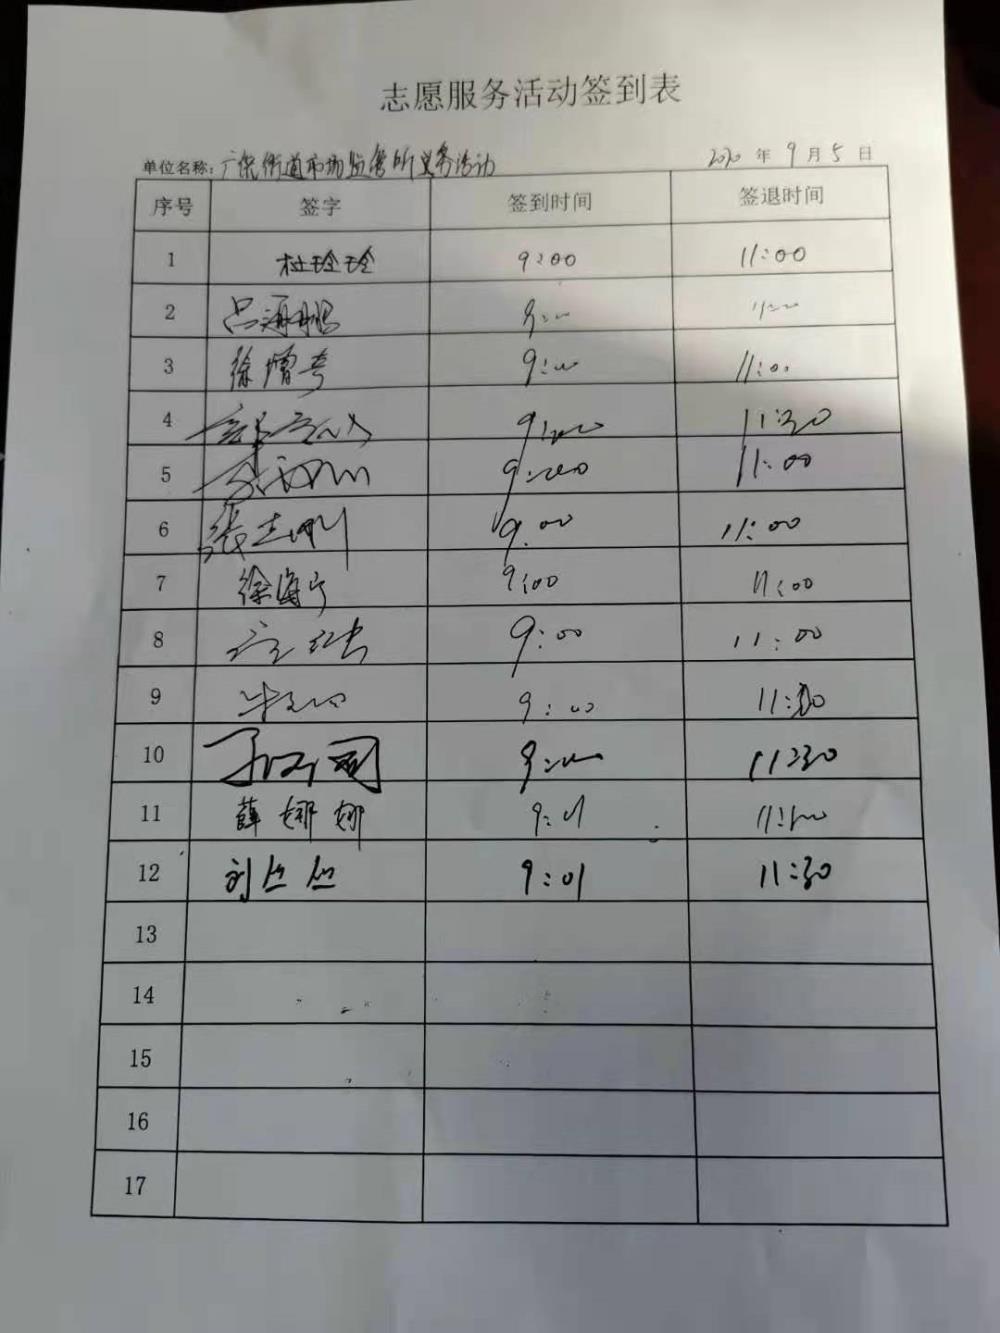 志愿服务活动签到表
单位名称：广饶街道市场监管所义务活动 2020 年 9 月 5 日
序号 签字 签到时间 签退时间
1 杜玲玲 9:00 11:00
2 吕海鹏 9:00 11:00
3 徐增奇 9:00 11:00
4 9:00 11:30
5 9:00 11:00
6 张志刚 9:00 11:00
7 徐海宁 9:00 11:00
8 9:00 11:00
9 9:00 11:30
10 9:00 11:30
11 薛娜娜 9:01 11:00
12 刘丝丝 9:01 11:30
13
14
15
16
17